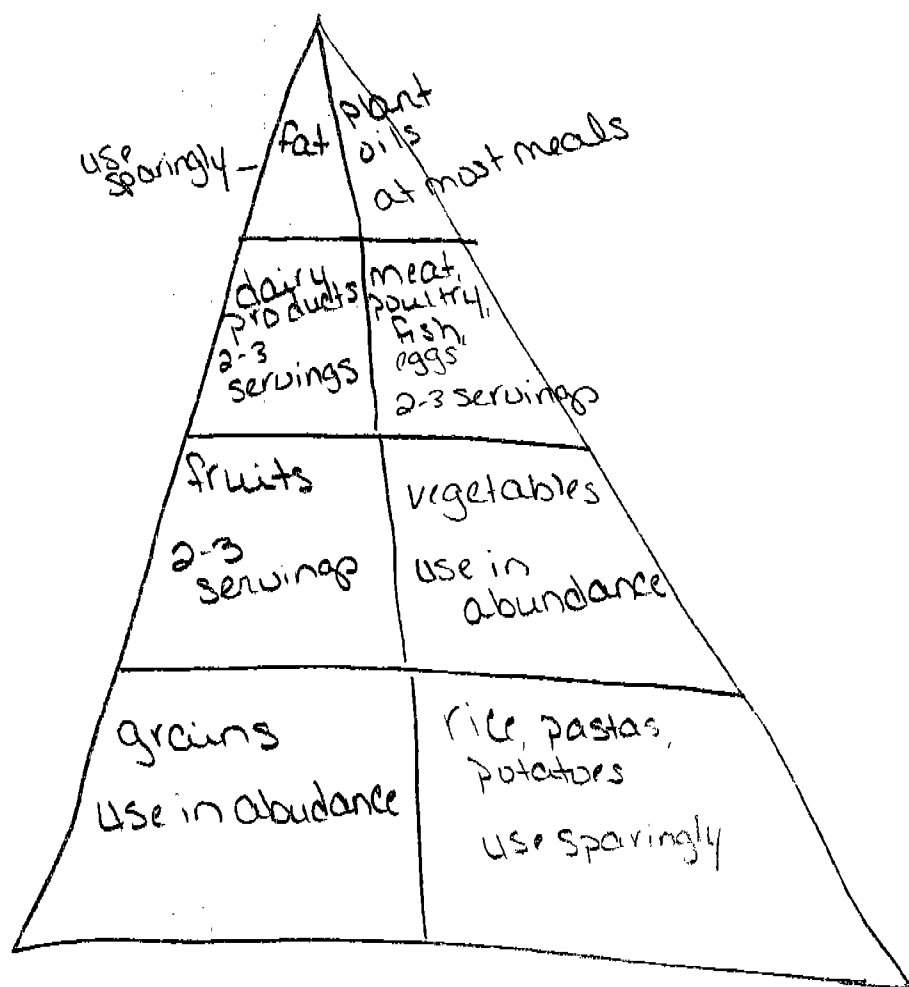 use
sparingly
fat
plant
oils
at most meals
dairy
products
2-3
servings
meat,
poultry,
fish,
eggs
2-3 servings
fruits
2-3
servings
vegetables
use in
abundance
grains
use in abudance
rice, pastas,
potatoes
use sparingly